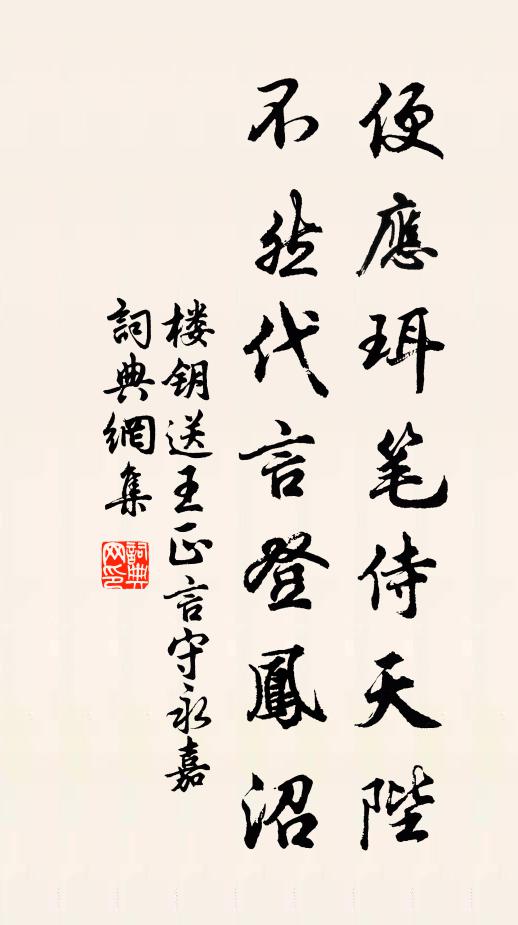 便應珥笔侍天陛
不然代言登鳳沼
楼钥送王正言守永嘉
詞典網集
詞典网印